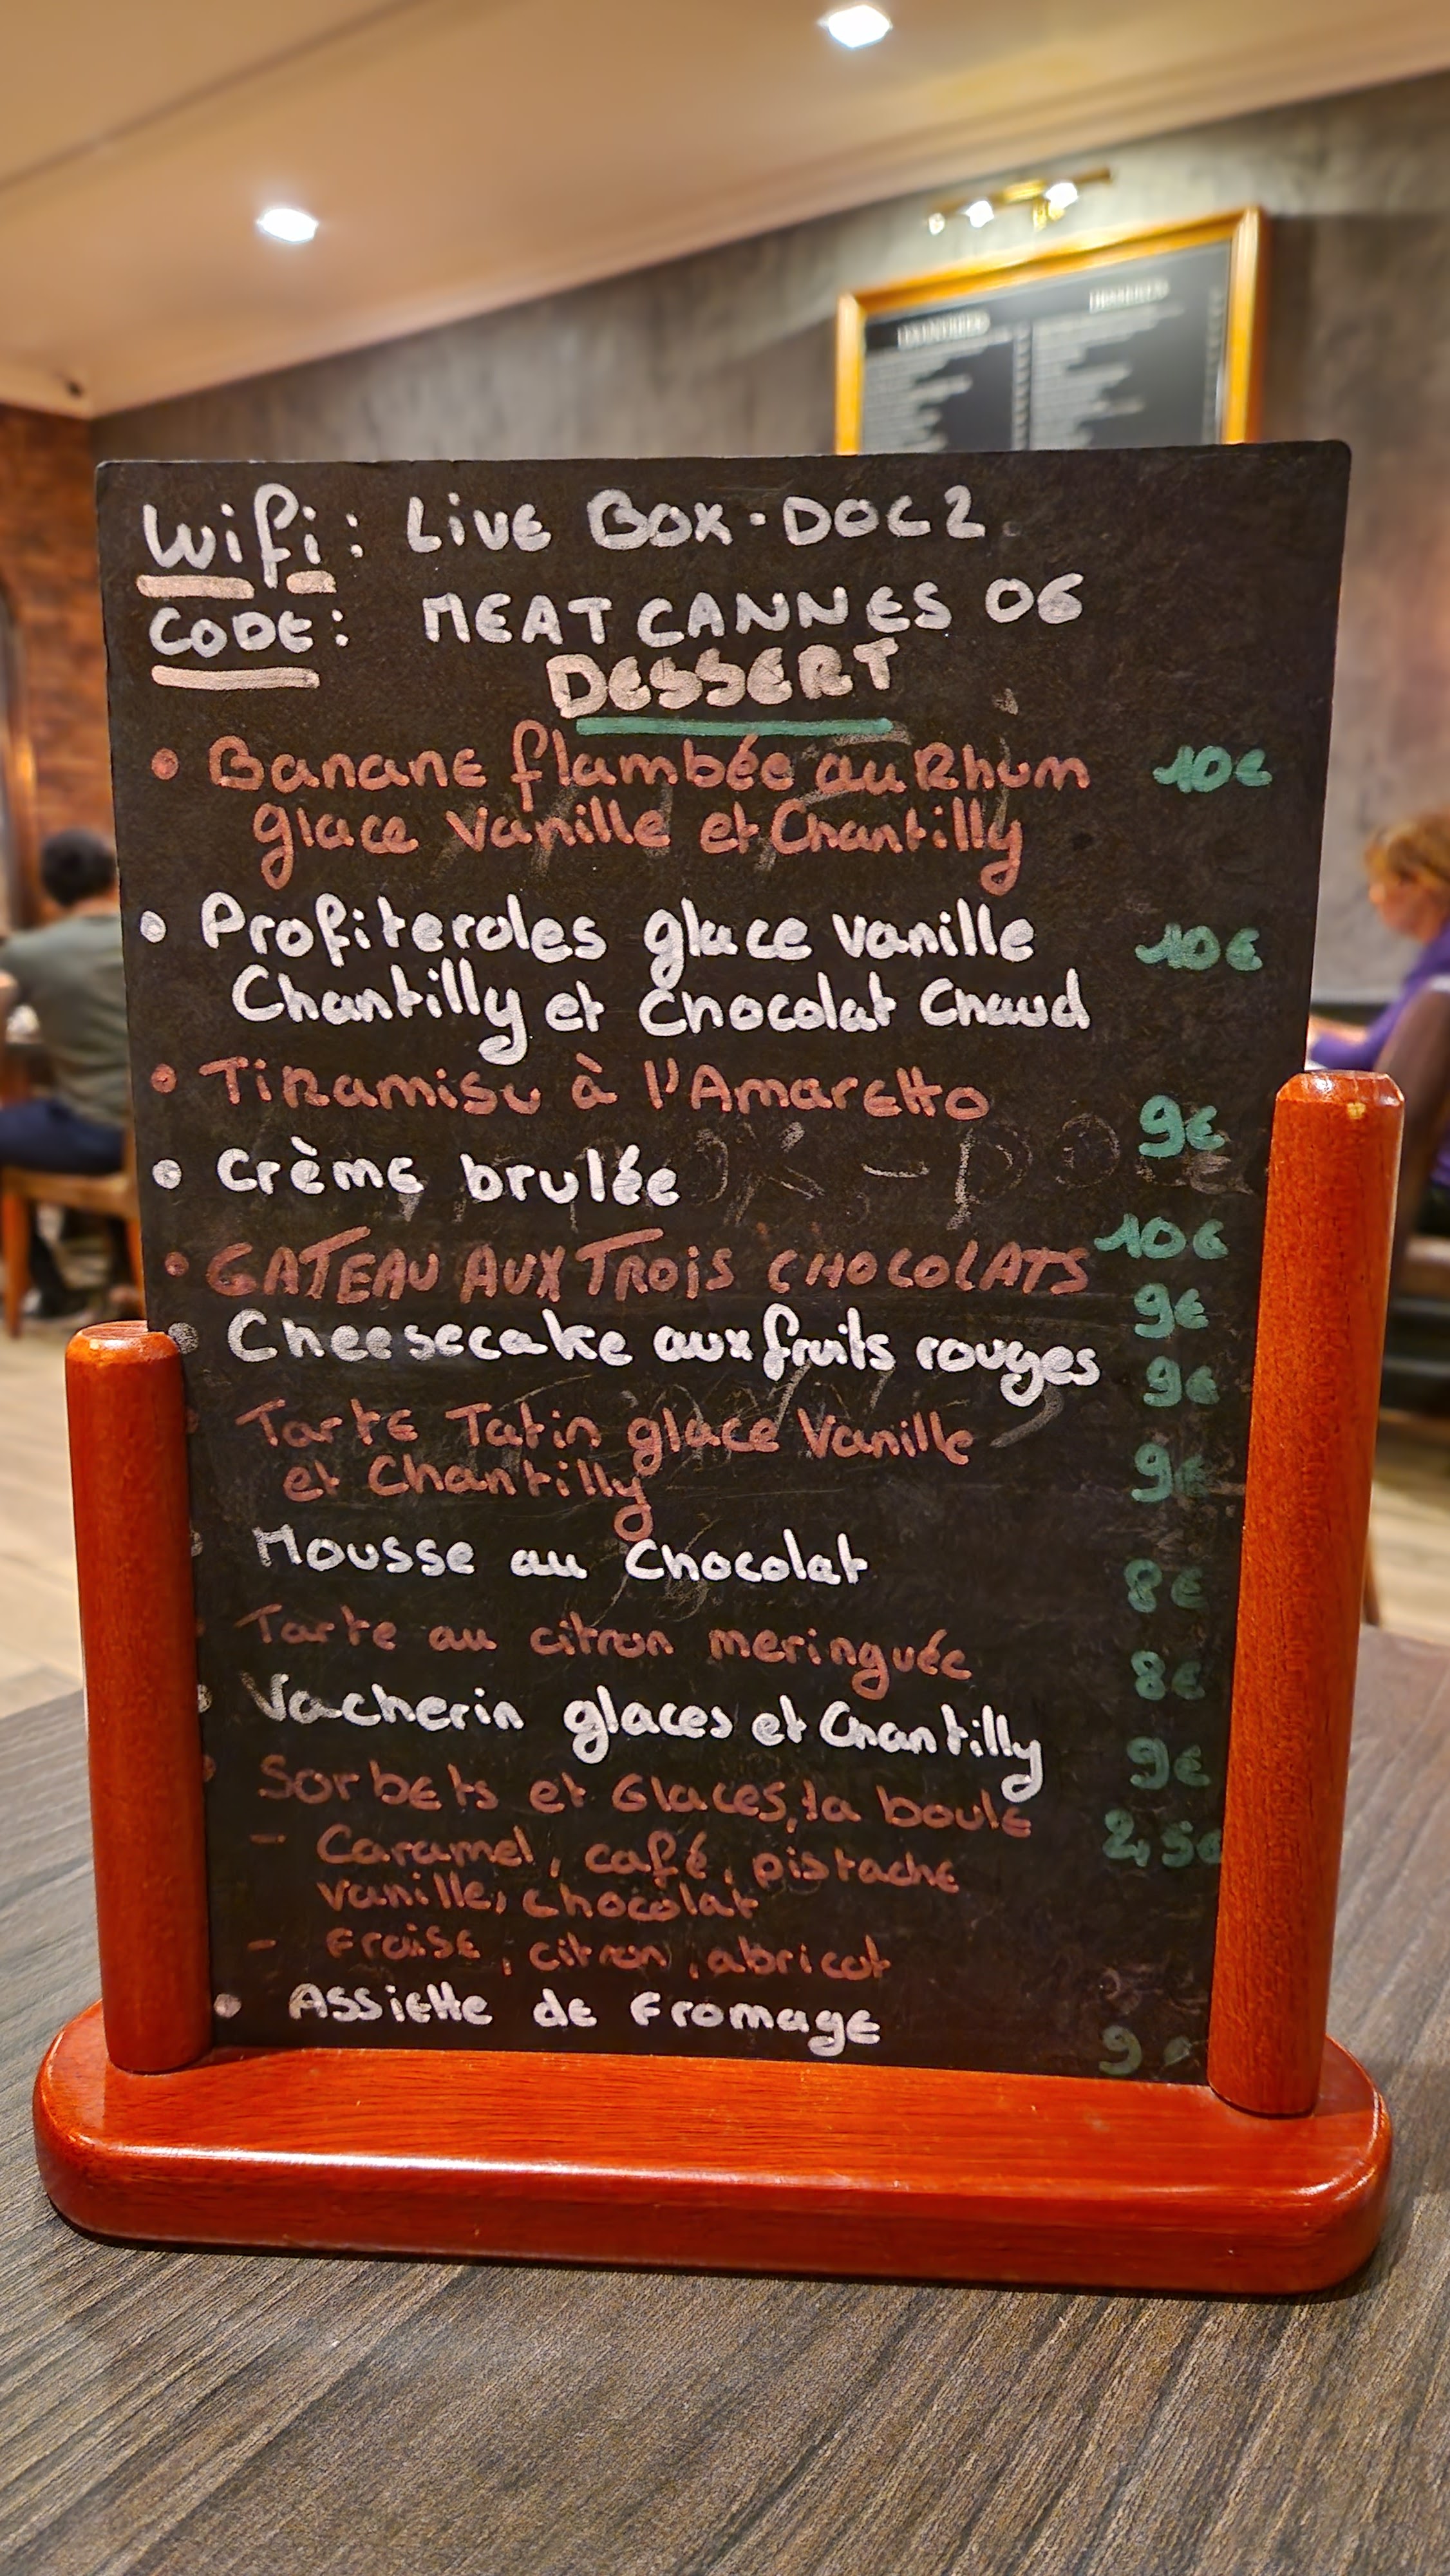 Wifi: LIVE BOX-DOC2
CODE: MEAT CANNES 06
DESSERT
• Banane flambée au Rhum 10€
glace Vanille et Chantilly
• Profiteroles glace vanille 10€
Chantilly et Chocolat Chaud
• Tiramisu à l'Amaretto 9€
• Crème brulée 10€
• GATEAU AUX TROIS CHOCOLATS 9€
• Cheesecake aux fruits rouges 9€
• Tarte Tatin glace Vanille 9€
et Chantilly
• Mousse au Chocolat 8€
• Tarte au citron meringuée 8€
• Vacherin glaces et Chantilly 9€
• Sorbets et Glaces, la boule 2,50
- Caramel, café, pistache
vanille, chocolat
- Fraise, citron, abricot
• Assiette de Fromage 9€